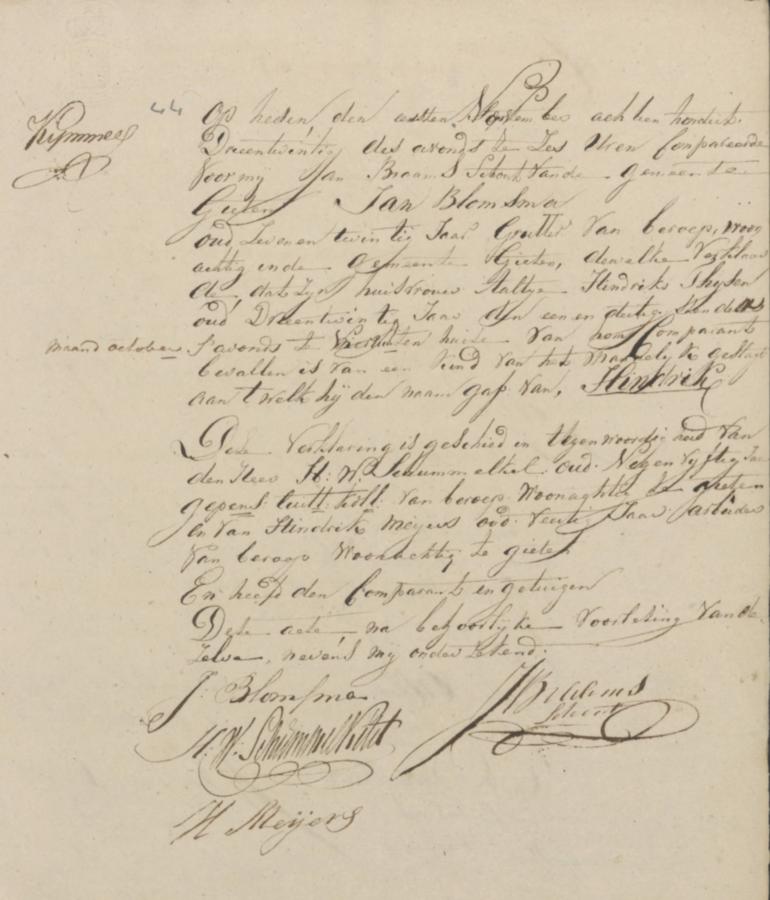 Kymmel
44
Op heden den eersten November achttien hondert
Drieentwintig des avonds te Zes Uren Compareerde
Voor my Jan Braams Schout Van de gemeente
Gieten Jan Blomsma
oud Zeven en twintig Jaar Grutter Van beroep, Woon
achtig in de Gemeente Gieten, dewelke Verklaar
de, dat Zyn huisvrouw Aaltje Hindriks Thysen
oud Drieentwintig Jaar den een en dertig
maand october S'avonds te ten huize Van hem Comparant
bevallen is van een Kind Van het Mandelyk geslagt
aan 't welk hy den naam gaf Van, Hindrik
Deze Verklaring is geschied in tegenwoordigheid Van
den Heer H: W: Schummelket oud Negen Vyftig Jaar
gepens: luitt: koll: Van beroep Woonagtig te Gieten
en Van Hindrik Meyers oud Veertig Jaar Arbeider
Van beroep Woonachtig te gieten
En heeft den Comparant en getuigen
Deze acte na behoorlyke Voorlezing Van de
Zelve, nevens my onder tekend.
J: Blomsma
JBraams
Schout
H. W. Schummelket
H Meijers